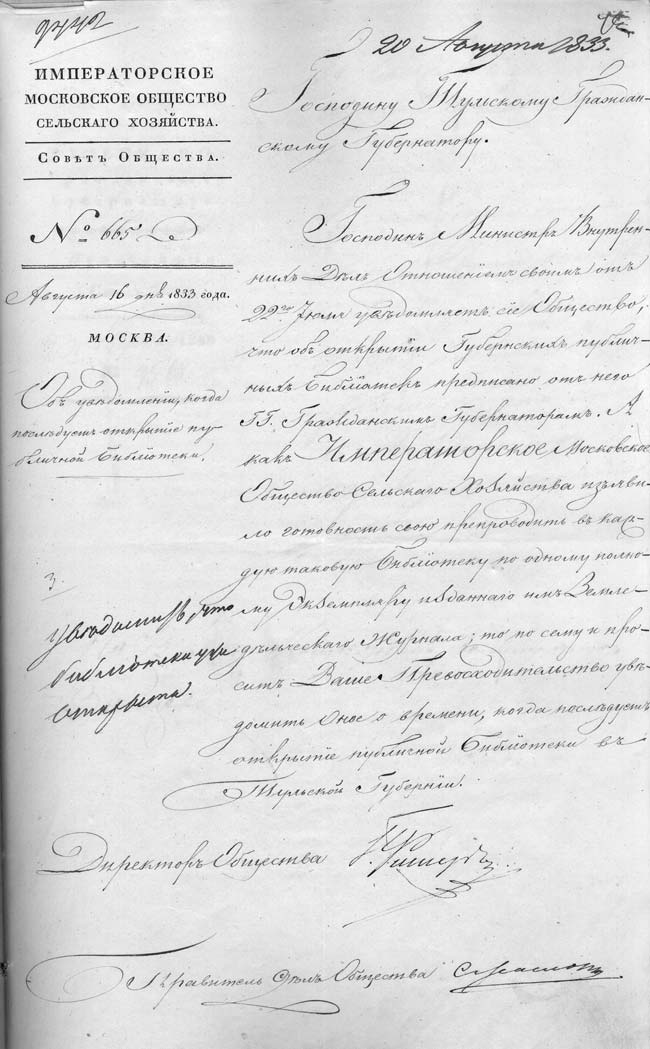 20 Августа 1833.
ИМПЕРАТОРСКОЕ
МОСКОВСКОЕ ОБЩЕСТВО
СЕЛЬСКАГО ХОЗЯЙСТВА.
Совѣтъ Общества.
№ 665
Августа 16 дня 1833 года.
МОСКВА.
Объ увѣдомленіи, когда
послѣдуетъ открытіе пу-
бличной Библіотеки.
Увѣдомить, что
библіотека уже
открыта.
Господину Тульскому Граждан-
скому Губернатору.
Господинъ Министръ Внутрен-
нихъ Дѣлъ Отношеніемъ своимъ отъ
22го Іюля увѣдомляетъ сіе Общество,
что объ открытіи Губернскихъ публич-
ныхъ Библіотекъ предписано отъ него
ГГ. Гражданскимъ Губернаторамъ. А
какъ Императорское Московское
Общество Сельскаго Хозяйства изъяви-
ло готовность свою препроводить въ каж-
дую таковую Библіотеку по одному полно-
му Экземпляру изданнаго имъ Земле-
дѣльческаго Журнала; то по сему и про-
ситъ Ваше Превосходительство увѣ-
домить Оное о времени, когда послѣдуетъ
открытіе публичной Библіотеки въ
Тульской Губерніи.
Директоръ Общества
Правитель Дѣлъ Общества С. Масловъ